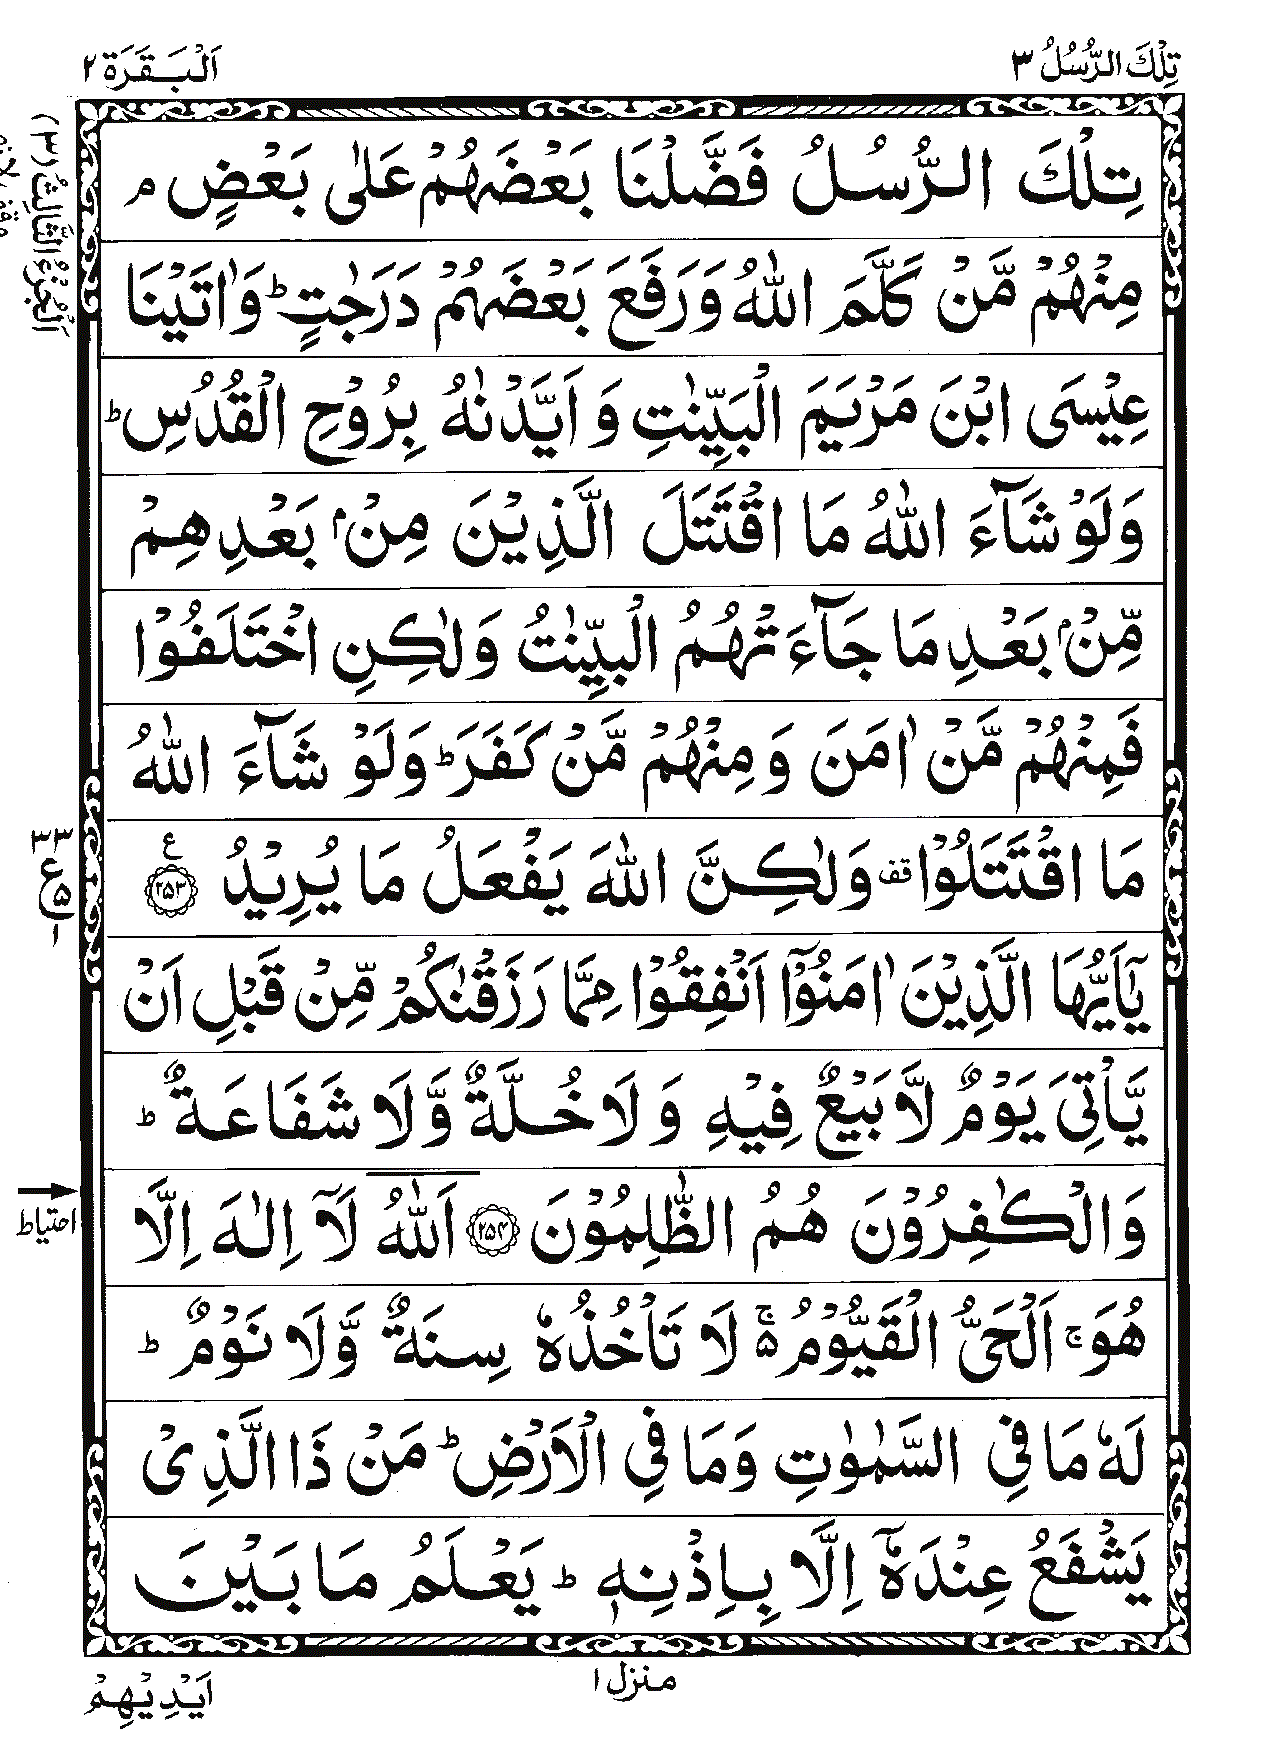 تِلْكَ الرُّسُلُ ٣
اَلْبَقَرَة ٢
تِلْكَ الرُّسُلُ فَضَّلْنَا بَعْضَهُمْ عَلٰى بَعْضٍ ۘ
مِنْهُمْ مَّنْ كَلَّمَ اللّٰهُ وَرَفَعَ بَعْضَهُمْ دَرَجٰتٍ ؕ وَاٰتَيْنَا
عِيْسَى ابْنَ مَرْيَمَ الْبَيِّنٰتِ وَ اَيَّدْنٰهُ بِرُوْحِ الْقُدُسِ ؕ
وَلَوْ شَآءَ اللّٰهُ مَا اقْتَتَلَ الَّذِيْنَ مِنْۢ بَعْدِهِمْ
مِّنْۢ بَعْدِ مَا جَآءَتْهُمُ الْبَيِّنٰتُ وَلٰكِنِ اخْتَلَفُوْا
فَمِنْهُمْ مَّنْ اٰمَنَ وَمِنْهُمْ مَّنْ كَفَرَ ؕ وَلَوْ شَآءَ اللّٰهُ
مَا اقْتَتَلُوْا قف وَلٰكِنَّ اللّٰهَ يَفْعَلُ مَا يُرِيْدُ ع ٢٥٣
يٰۤاَيُّهَا الَّذِيْنَ اٰمَنُوْۤا اَنْفِقُوْا مِمَّا رَزَقْنٰكُمْ مِّنْ قَبْلِ اَنْ
يَّاْتِيَ يَوْمٌ لَّا بَيْعٌ فِيْهِ وَ لَا خُلَّةٌ وَّلَا شَفَاعَةٌ ؕ
وَالْكٰفِرُوْنَ هُمُ الظّٰلِمُوْنَ ٢٥٤ اَللّٰهُ لَاۤ اِلٰهَ اِلَّا
هُوَ ۚ اَلْحَيُّ الْقَيُّوْمُ ۵ۚ لَا تَاْخُذُهٗ سِنَةٌ وَّلَا نَوْمٌ ؕ
لَهٗ مَا فِي السَّمٰوٰتِ وَمَا فِي الْاَرْضِ ؕ مَنْ ذَا الَّذِيْ
يَشْفَعُ عِنْدَهٗۤ اِلَّا بِاِذْنِهٖ ؕ يَعْلَمُ مَا بَيْنَ
اَلْجُزْءُ الثَّالِثُ (٣)
٣٣
ع
۵
١
احتیاط
منزل ١
اَيْدِيْهِمْ